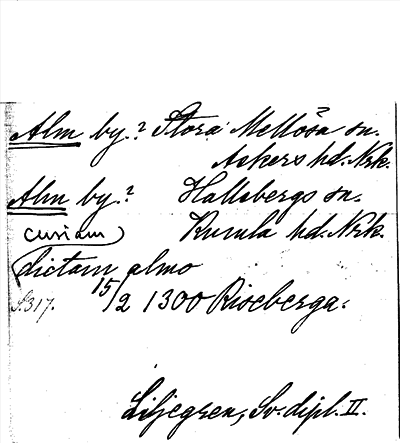 Alm by.? Stora Mellösa sn.
Askers hd. Nrk.
Alm by.? Hallsbergs sn.
curiam Kumla hd. Nrk.
dictam almo
S. 317. 15/2 1300 Riseberga.
Liljegren, Sv. dipl. II.